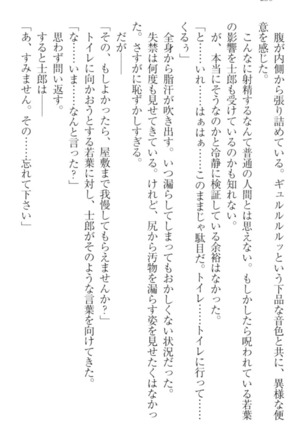 腹が内側から張り詰めている。ギュルルルルッという下品な音色と共に、異様な便
意を感じた。
こんなに射精するなんて普通の人間とは思えない。もしかしたら呪われている若葉
の影響を士郎も受けているのかも知れない。
が、本当にそうなのかと冷静に検証している余裕はなかった。
「と……トイレ……いれ……はぁはぁ……このままじゃ駄目だ。トイレ……トイレに行って……
くるぅ」
全身から脂汗が吹き出す。いつ漏らしてしまってもおかしくない状況だった。
失禁は何度も見せてきている。けれど、尻から汚物を漏らす姿を見せたくはなかっ
た。さすがに恥ずかしすぎる。
だが──
「あの……もしよかったら、屋敷まで我慢してもらえませんか？」
トイレに向かおうとする若葉に対し、士郎がそのような言葉を向けてきた。
「な……いま……なんと言った？」
思わず問い返す。
すると士郎は──
「あ、すみません。その……忘れて下さい」